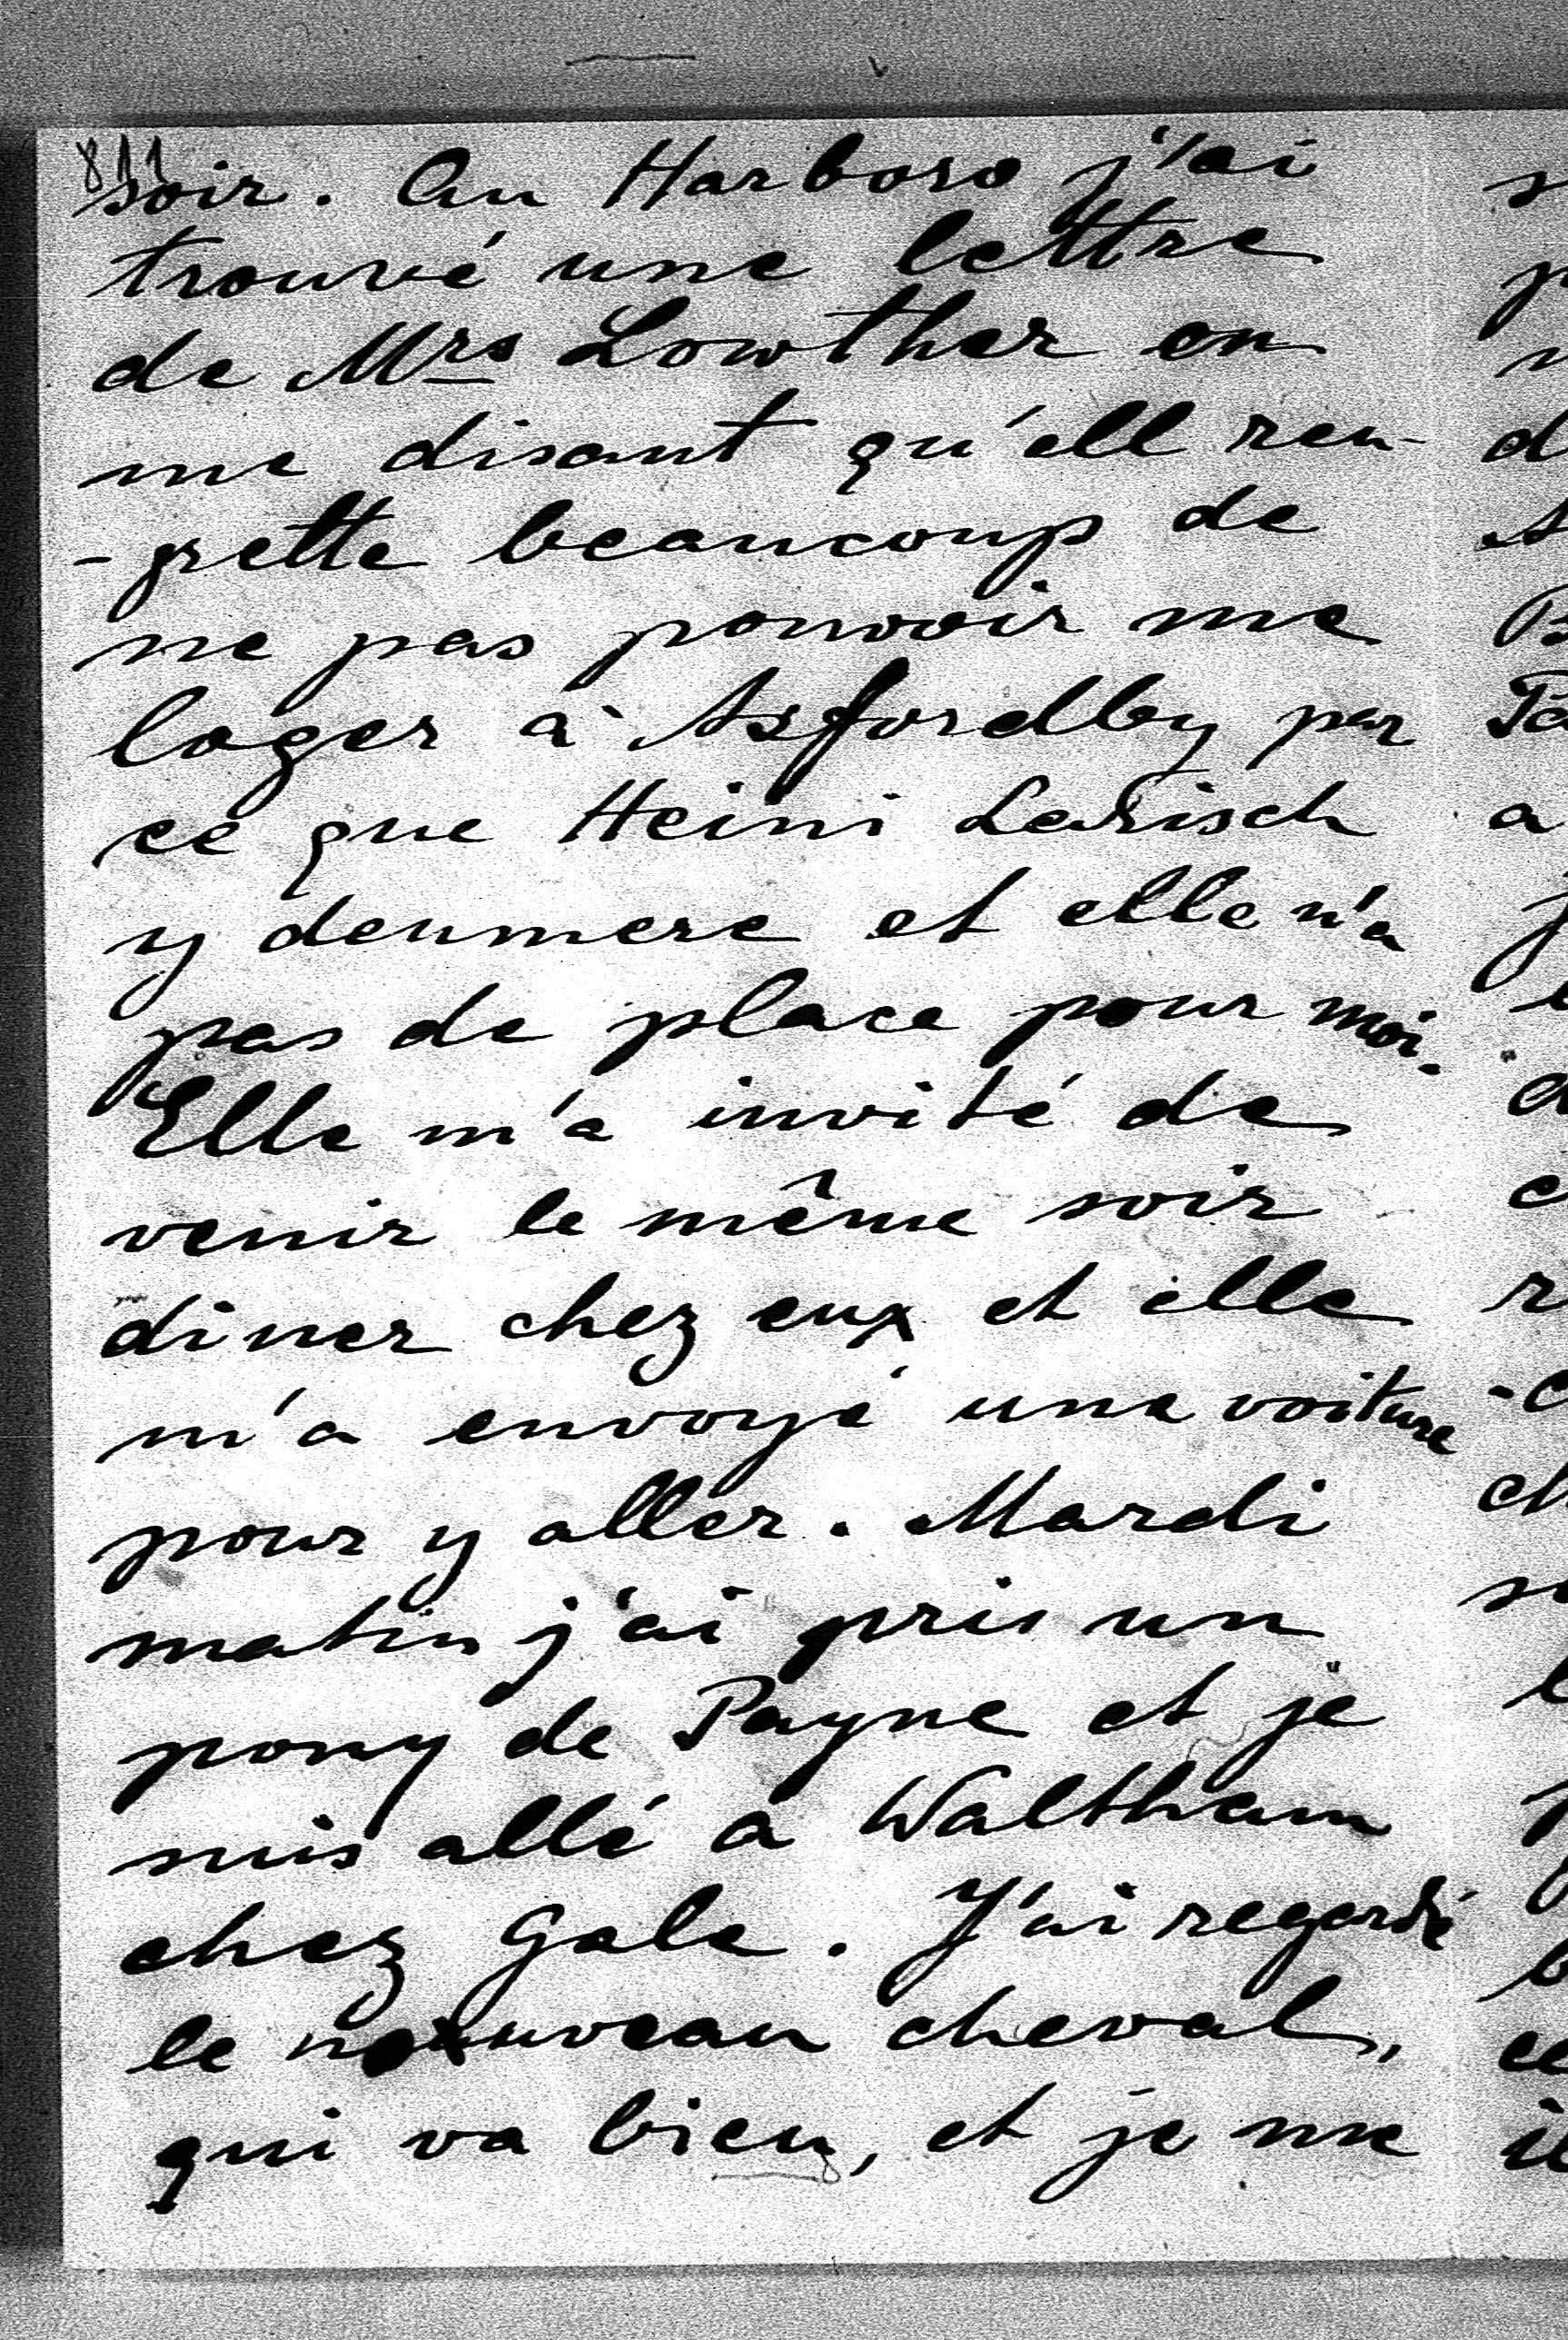 811
soir. Au Harboro j'ai
trouvé une lettre
de Mrs Lowther en
me disant qu'ell ren-
-grette beaucoup de
ne pas pouvoir me
loger à Asfordby par
ce que Heini Larisch
y deumere et elle n'a
pas de place pour moi.
Elle m'a invité de
venir le même soir
diner chez eux et elle
m'a envoyé une voiture
pour y aller. Mardi
matin j'ai pris un
pony de Payne et je
suis allé a Waltham
chez Gale. J'ai regardé
le nouveau cheval,
qui va bien, et je me